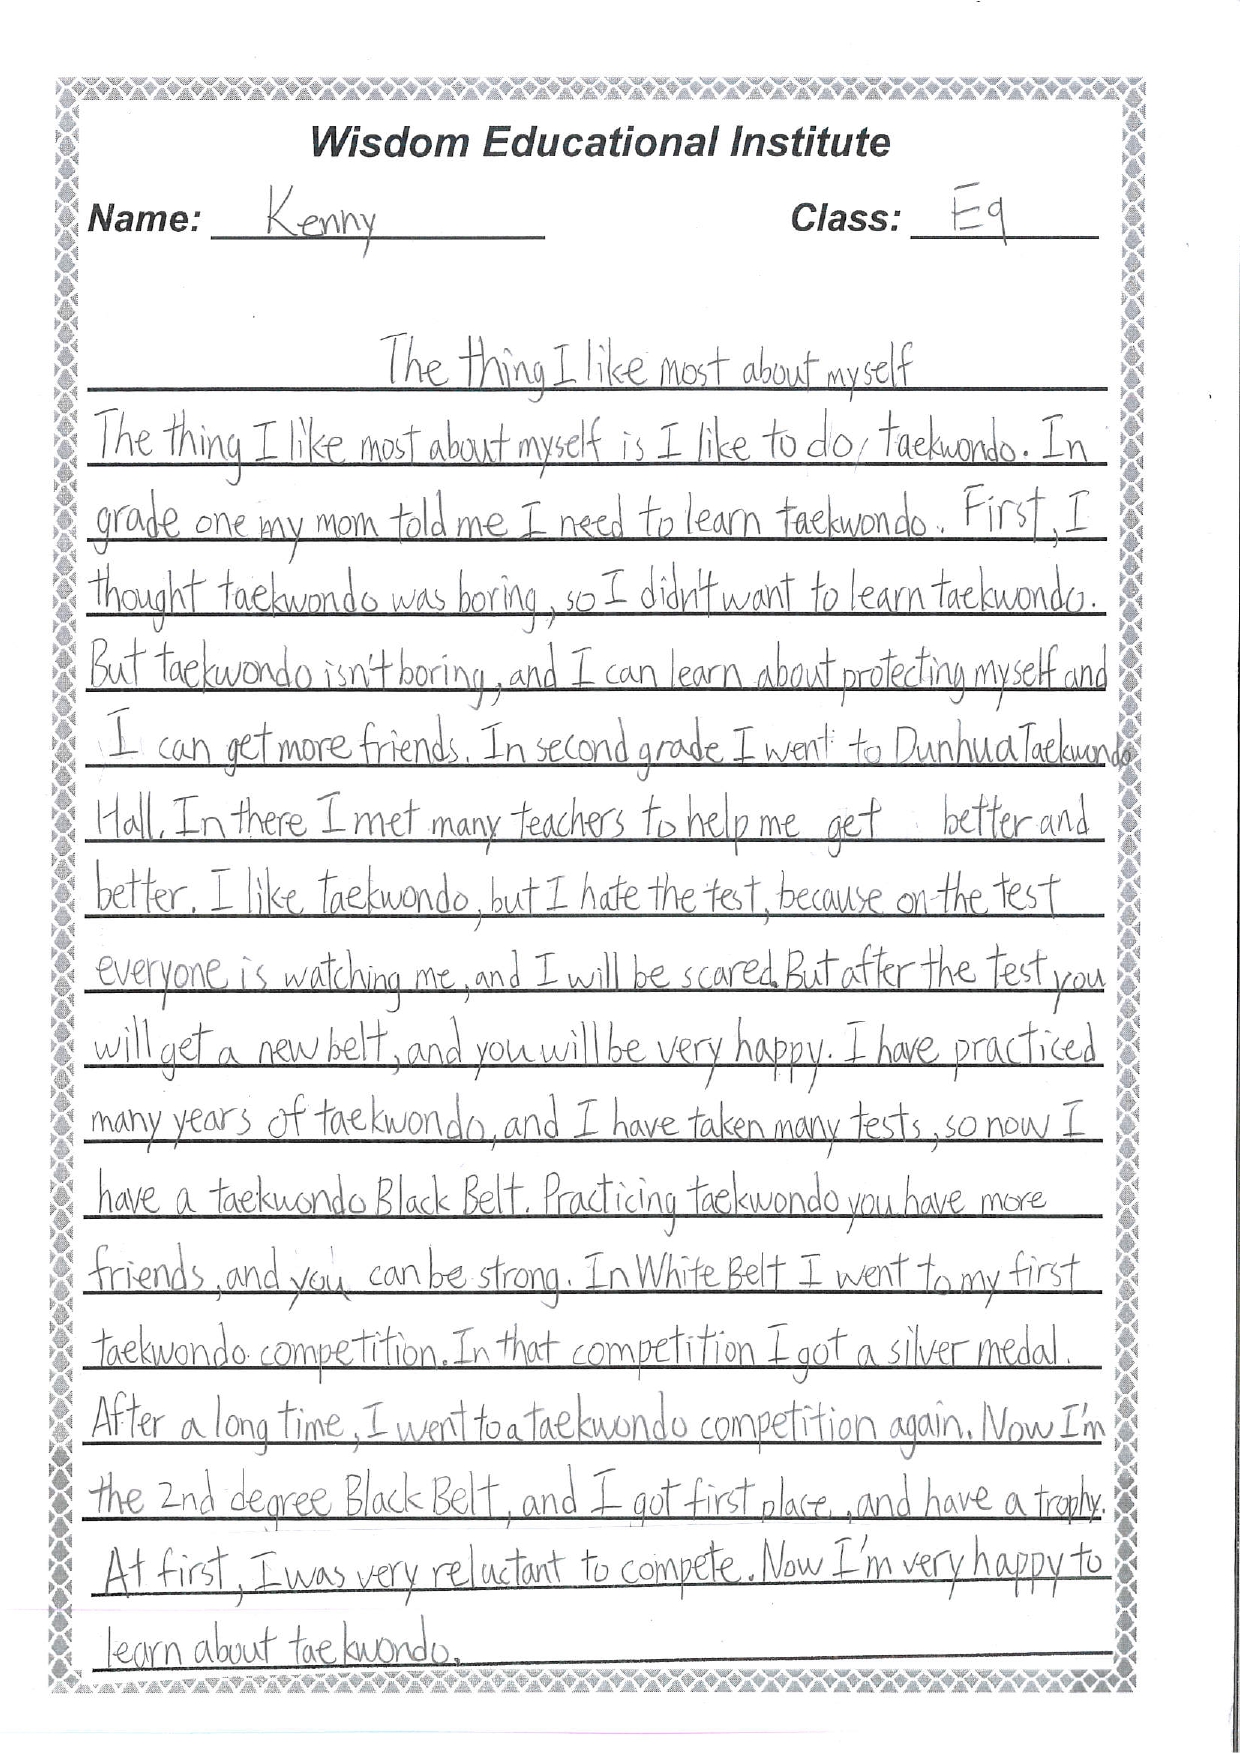 Wisdom Educational Institute
Name: Kenny Class: Eq
The thing I like most about myself
The thing I like most about myself is I like to do taekwondo. In
grade one my mom told me I need to learn taekwondo. First, I
thought taekwondo was boring, so I didn't want to learn taekwondo.
But taekwondo isn't boring, and I can learn about protecting myself and
I can get more friends. In second grade I went to Dunhua Taekwondo
Hall. In there I met many teachers to help me get better and
better. I like taekwondo, but I hate the test, because on the test
everyone is watching me, and I will be scared. But after the test you
will get a new belt, and you will be very happy. I have practiced
many years of taekwondo, and I have taken many tests, so now I
have a taekwondo Black Belt. Practicing taekwondo you have more
friends, and you can be strong. In White Belt I went to my first
taekwondo competition. In that competition I got a silver medal.
After a long time, I went to a taekwondo competition again. Now I'm
the 2nd degree Black Belt, and I got first place, and have a trophy.
At first, I was very reluctant to compete. Now I'm very happy to
learn about taekwondo.